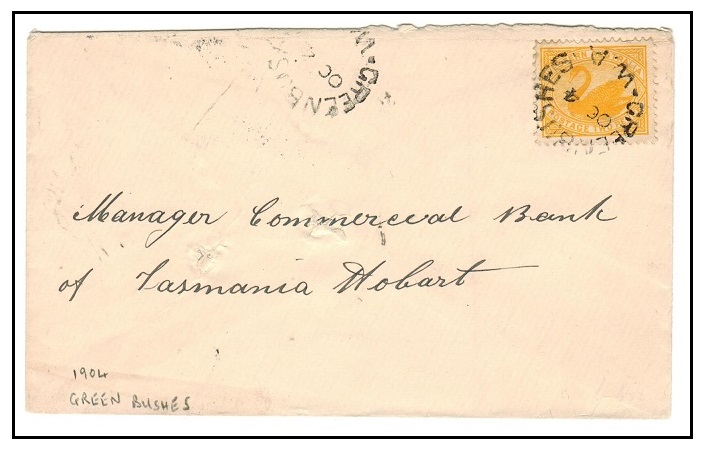 W.A. GREENBUSHES
OC
W.A. GREENBUSHES
OC
POSTAGE
Manager Commercial Bank
of Tasmania Hobart
1904
GREEN BUSHES